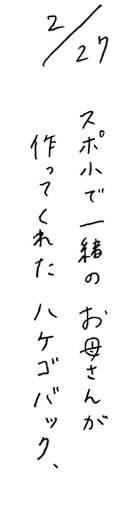 2/27
スポ小で一緒のお母さんが
作ってくれたハケゴバック、